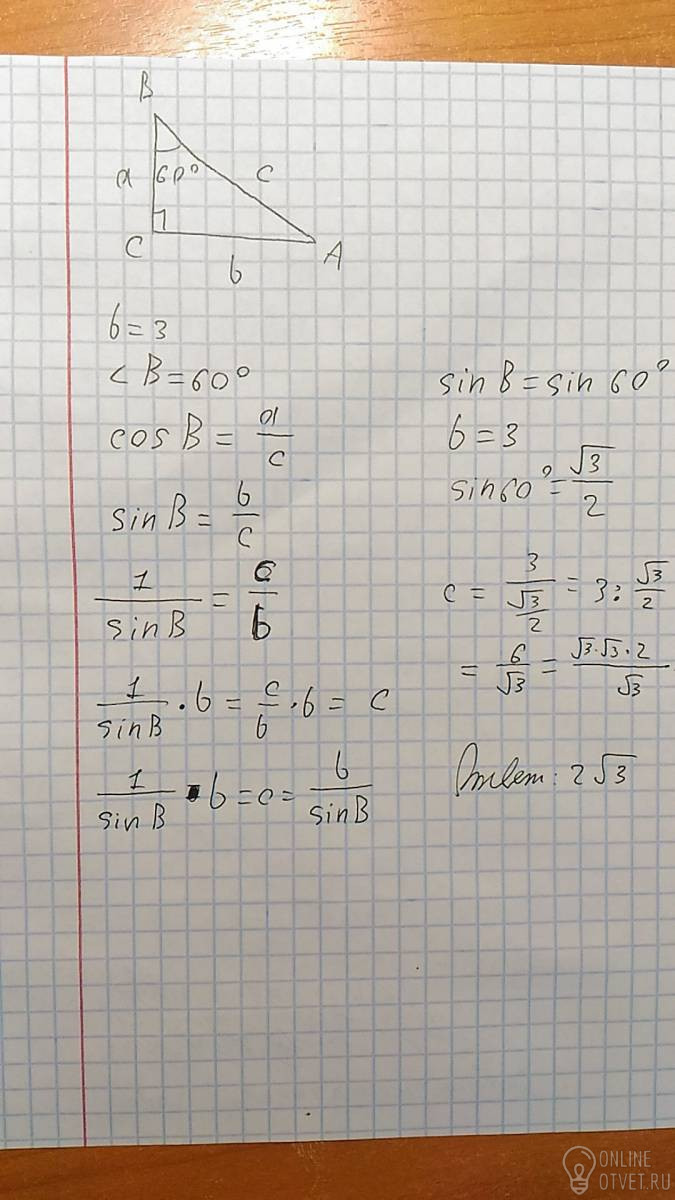 B
a 60° c
C
b
A
b = 3
< B = 60°
cos B = a/c
sin B = b/c
1/sin B = c/b
1/sin B · b = c/b · b = c
1/sin B · b = c = b/sin B
sin B = sin 60°
b = 3
sin 60° = √3/2
c = 3/(√3/2) = 3 : √3/2
= 6/√3 = √3·√3·2/√3
Ответ: 2√3
ONLINE
OTVET.RU